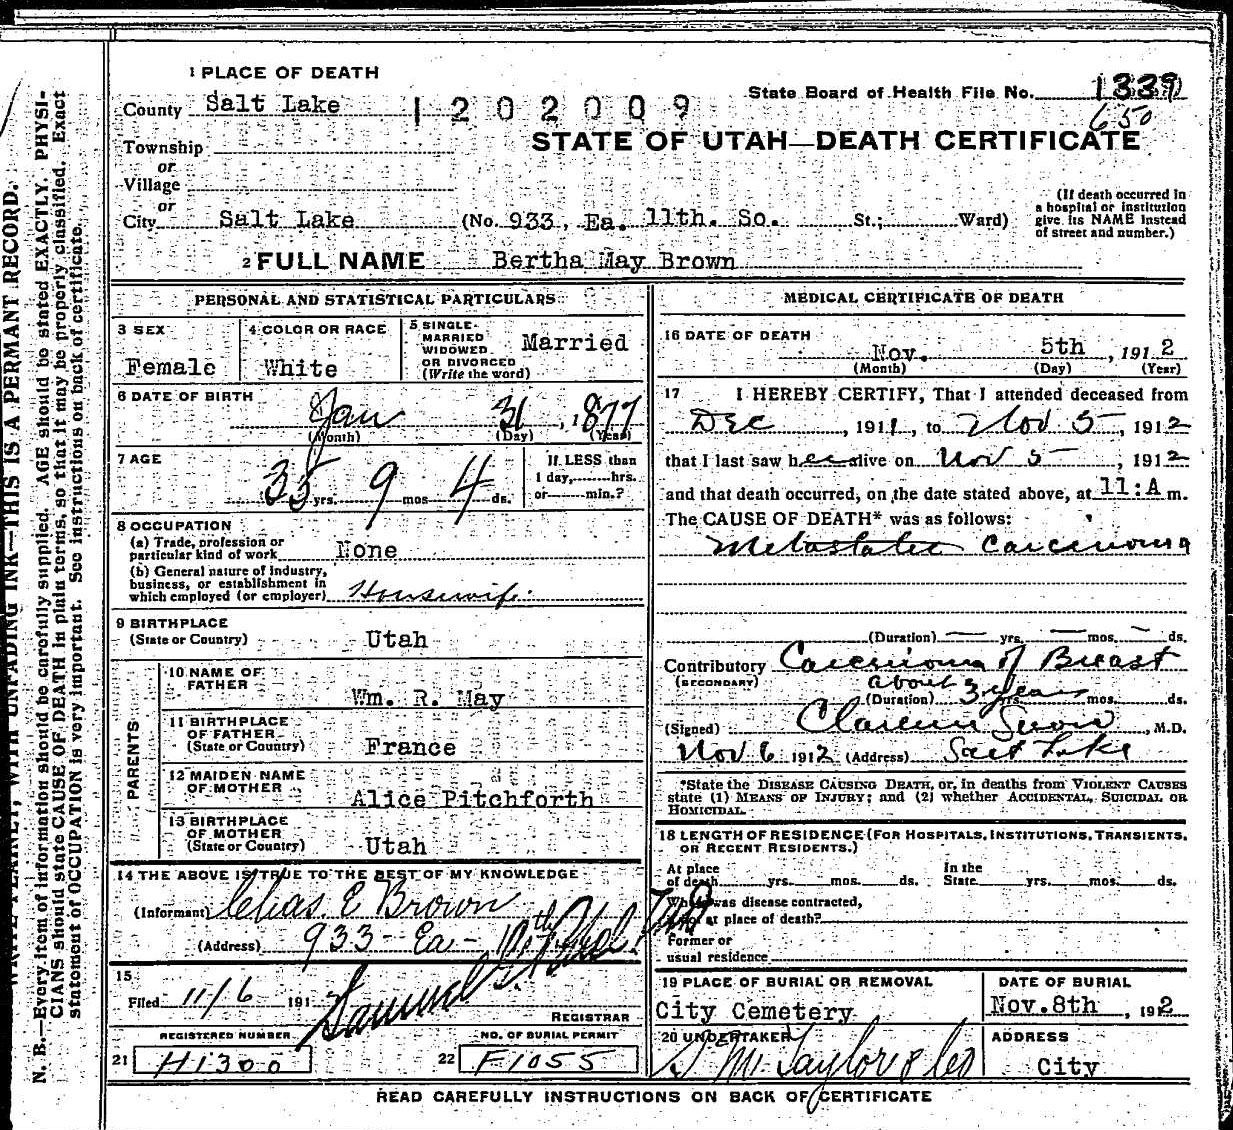 1 PLACE OF DEATH
State Board of Health File No. 1339
County Salt Lake 1202009
650
STATE OF UTAH—DEATH CERTIFICATE
Township
or
Village
or
City Salt Lake (No. 933, Ea. 11th. So. St.; Ward)
(If death occurred in a hospital or institution give its NAME instead of street and number.)
2 FULL NAME Bertha May Brown
PERSONAL AND STATISTICAL PARTICULARS
3 SEX
Female
4 COLOR OR RACE
White
5 SINGLE
MARRIED
WIDOWED
OR DIVORCED
(Write the word)
Married
6 DATE OF BIRTH
Jan 31, 1877
(Month) (Day) (Year)
7 AGE
35 yrs. 9 mos 4 ds.
If LESS than
1 day, hrs.
or min.?
8 OCCUPATION
(a) Trade, profession or
particular kind of work None
(b) General nature of industry,
business, or establishment in
which employed (or employer) Housewife
9 BIRTHPLACE
(State or Country) Utah
PARENTS
10 NAME OF
FATHER Wm. R. May
11 BIRTHPLACE
OF FATHER
(State or Country) France
12 MAIDEN NAME
OF MOTHER Alice Pitchforth
13 BIRTHPLACE
OF MOTHER
(State or Country) Utah
14 THE ABOVE IS TRUE TO THE BEST OF MY KNOWLEDGE
(Informant) Chas. E Brown
(Address) 933 Ea
15
Filed 11/6 191
Samuel G. Paul
REGISTRAR
REGISTERED NUMBER
21 H1300
NO. OF BURIAL PERMIT
22 F1055
MEDICAL CERTIFICATE OF DEATH
16 DATE OF DEATH
Nov. 5th, 1912
(Month) (Day) (Year)
17 I HEREBY CERTIFY, That I attended deceased from
Dec, 1911, to Nov 5, 1912
that I last saw her alive on Nov 5, 1912
and that death occurred, on the date stated above, at 11:A m.
The CAUSE OF DEATH* was as follows:
Metastatic Carcinoma
(Duration) — yrs. — mos. — ds.
Contributory Carcinoma of Breast
(SECONDARY) about
(Duration) 3 years yrs. mos. ds.
(Signed) Clarence Snow, M.D.
Nov 6 1912 (Address) Salt Lake
*State the DISEASE CAUSING DEATH, or, in deaths from VIOLENT CAUSES
state (1) MEANS OF INJURY; and (2) whether ACCIDENTAL, SUICIDAL OR
HOMICIDAL.
18 LENGTH OF RESIDENCE (FOR HOSPITALS, INSTITUTIONS, TRANSIENTS,
OR RECENT RESIDENTS.)
At place
of death yrs. mos. ds.
In the
State yrs. mos. ds.
Where was disease contracted,
if not at place of death?
Former or
usual residence
19 PLACE OF BURIAL OR REMOVAL
City Cemetery
DATE OF BURIAL
Nov. 8th, 1912
20 UNDERTAKER
S M Taylor & Co
ADDRESS
City
READ CAREFULLY INSTRUCTIONS ON BACK OF CERTIFICATE
WRITE PLAINLY, WITH UNFADING INK—THIS IS A PERMANT RECORD.
N. B.—Every item of information should be carefully supplied. AGE should be stated EXACTLY. PHYSI-
CIANS should state CAUSE OF DEATH in plain terms, so that it may be properly classified. Exact
statement of OCCUPATION is very important. See instructions on back of certificate.